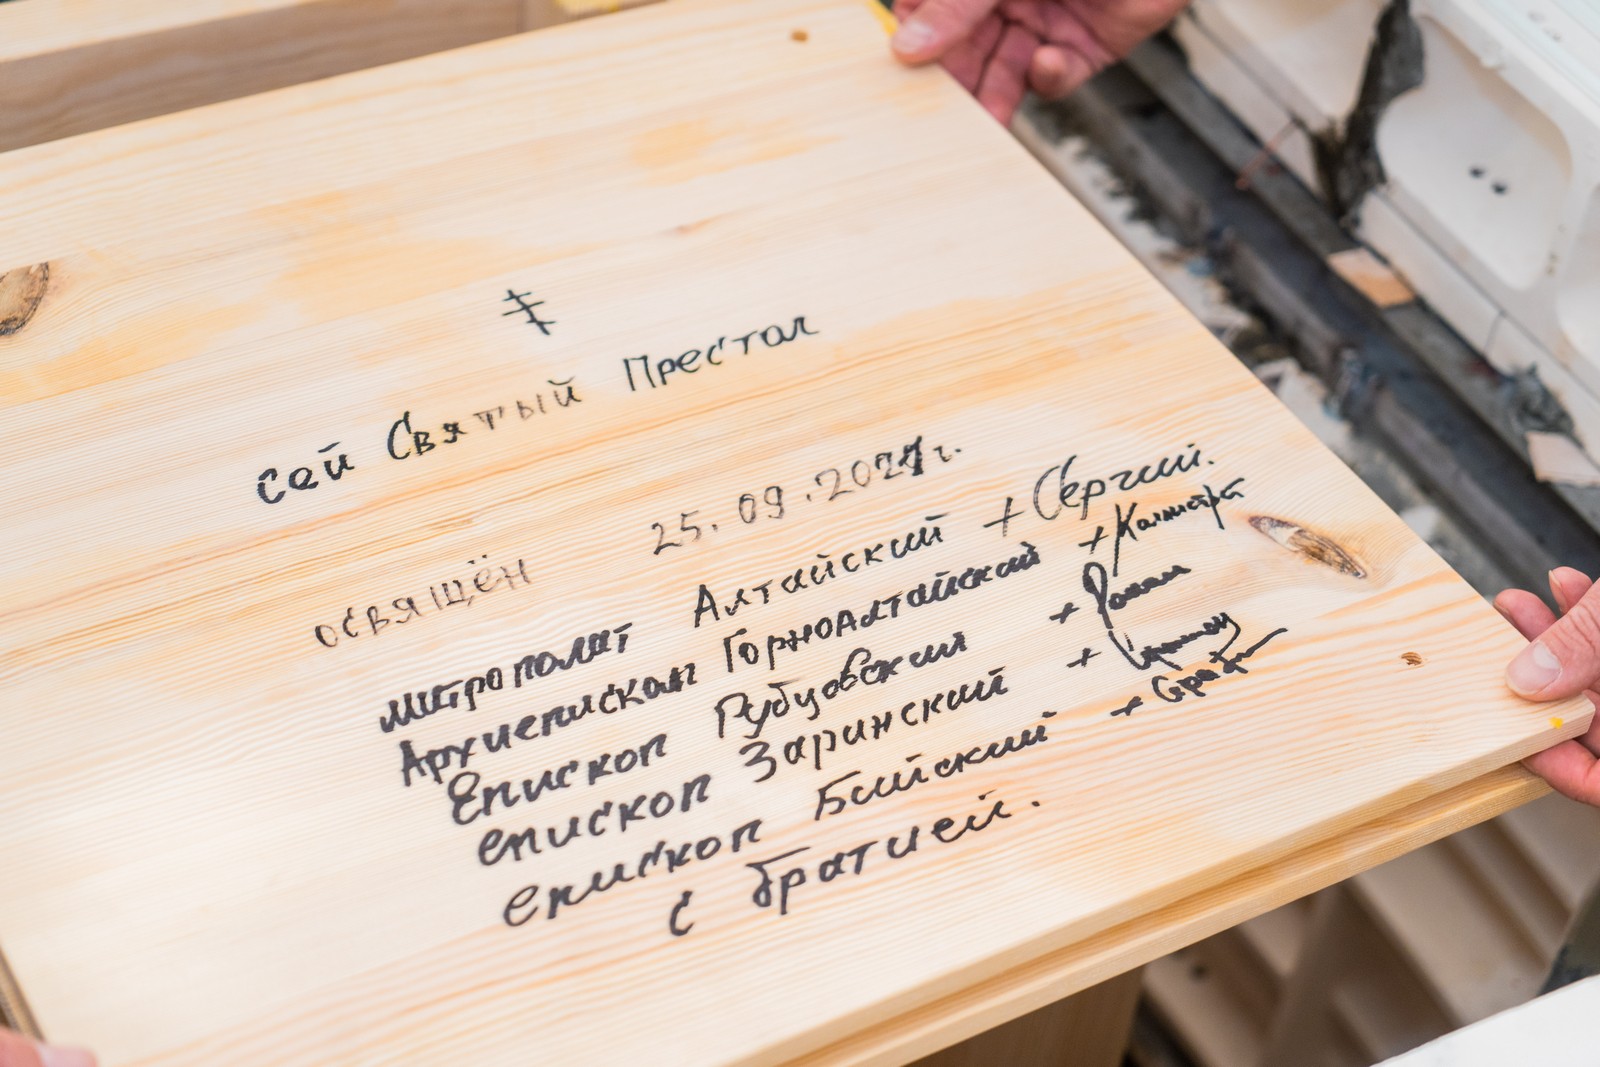 сей Святый Престол
освящён 25.09.2021г.
митрополит Алтайский + Сергий.
Архиепископ Горноалтайский + Каллистрат
Епископ Рубцовский + Роман
епископ Заринский +
епископ Бийский + Серафим
с братией.